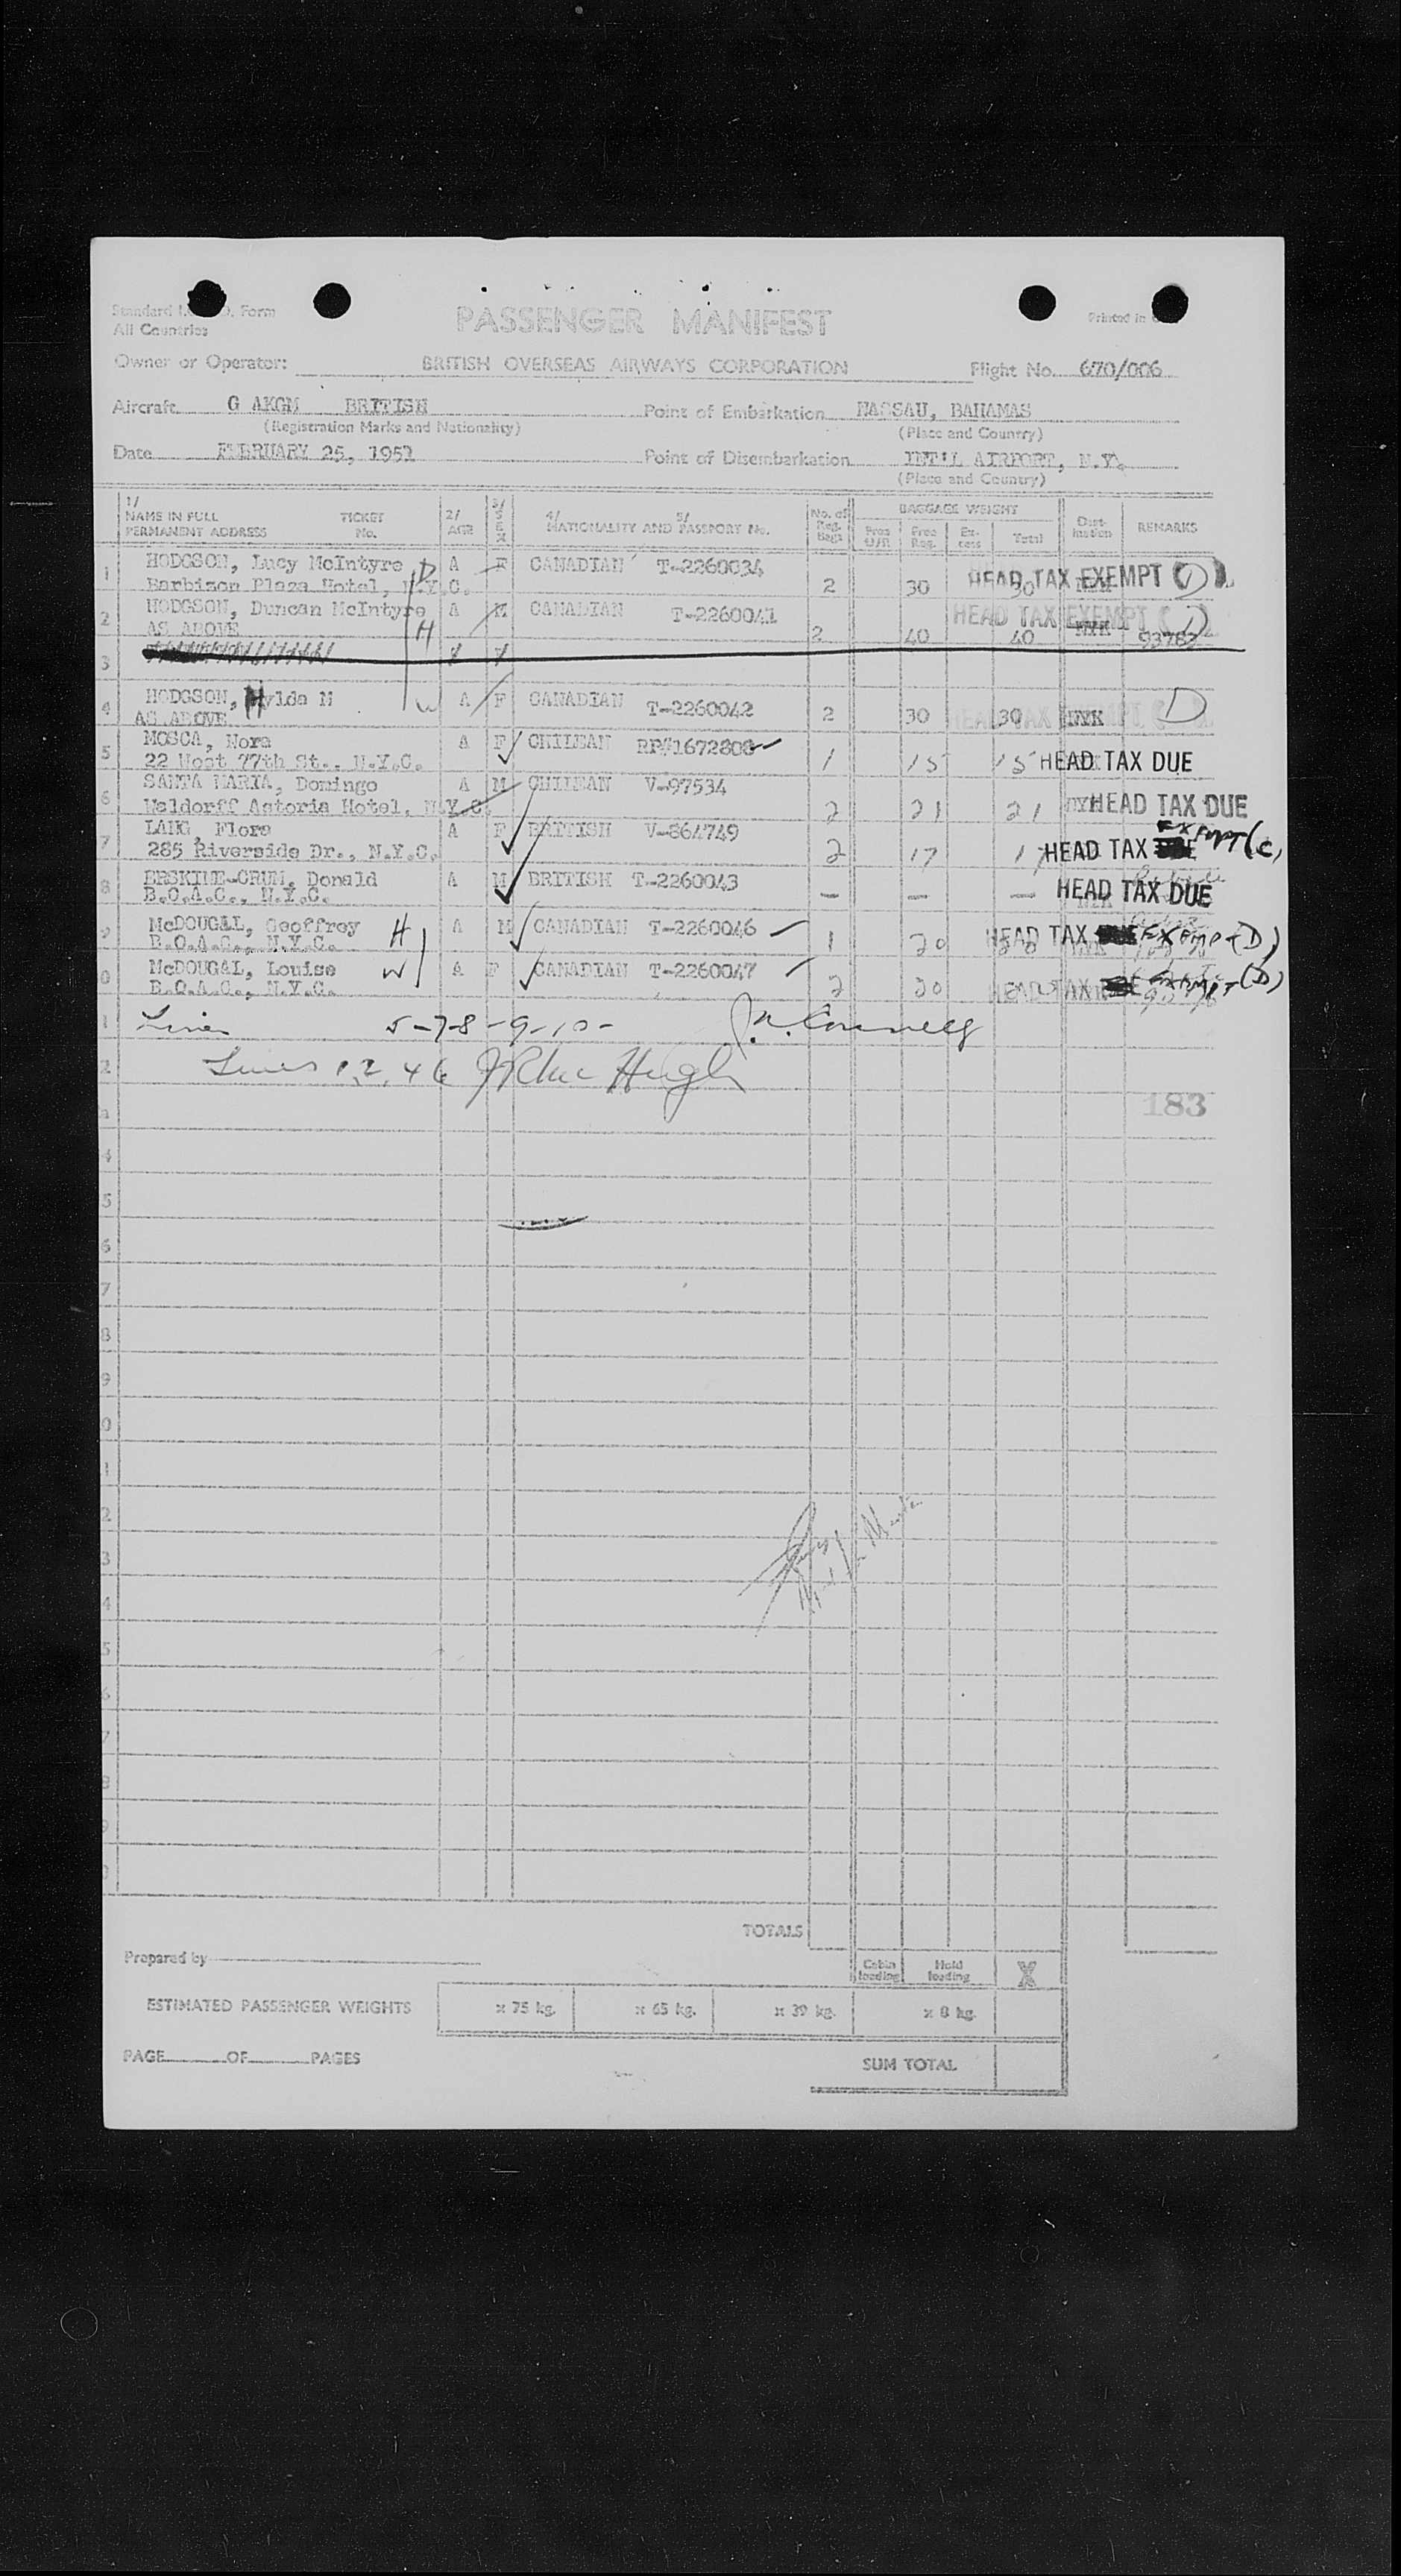 All Countries
PASSENGER MANIFEST
Printed in
Owner or Operator: BRITISH OVERSEAS AIRWAYS CORPORATION Flight No. 670/006
Aircraft G AKGM BRITISH Point of Embarkation NASSAU, BAHAMAS
(Registration Marks and Nationality) (Place and Country)
Date FEBRUARY 25, 1952 Point of Disembarkation INT'L AIRPORT, N.Y.
(Place and Country)
1/ NAME IN FULL TICKET No. PERMANENT ADDRESS 2/ AGE 3/ SEX 4/ NATIONALITY AND 5/ PASSPORT No. No. of Reg. Bags BAGGAGE WEIGHT Free Reg. Ex-cess Total Dest-ination REMARKS
1 HODGSON, Lucy McIntyre D A F CANADIAN T-2260034
Barbizon Plaza Hotel, N.Y.C. 2 30 30 HEAD TAX EXEMPT (D)
2 HODGSON, Duncan McIntyre H A M CANADIAN T-2260041 HEAD TAX EXEMPT (D)
AS ABOVE 2 40 40 NYK 93783
3
4 HODGSON, Hylda M W A F CANADIAN T-2260042
AS ABOVE 2 30 30 NYK HEAD TAX EXEMPT D
5 MOSCA, Nora A F CHILEAN RP#1672808
22 West 77th St., N.Y.C. 1 15 15 HEAD TAX DUE
6 SANTA MARIA, Domingo A M CHILEAN V-97534
Waldorff Astoria Hotel, N.Y.C. 2 21 21 HEAD TAX DUE
7 LANG, Flora A F BRITISH V-864749
285 Riverside Dr., N.Y.C. 2 17 17 HEAD TAX EXEMPT (C)
8 ERSKINE-CRUM, Donald A M BRITISH T-2260043
B.O.A.C., N.Y.C. — — — HEAD TAX DUE
9 McDOUGAL, Geoffrey H A M CANADIAN T-2260046
B.O.A.C., N.Y.C. 1 20 20 HEAD TAX EXEMP (D)
0 McDOUGAL, Louise W A F CANADIAN T-2260047
B.O.A.C., N.Y.C. 2 20 HEAD TAX EXEMPT (D)
1 Lines 5-7-8-9-10-
2 Lines 1, 2, 4 6
183
4
5
6
7
8
9
0
1
2
3
4
5
6
7
8
9
TOTALS
Prepared by Cabin loading Hold loading X
ESTIMATED PASSENGER WEIGHTS x 75 kg. x 65 kg. x 39 kg. x 8 kg.
PAGE OF PAGES SUM TOTAL